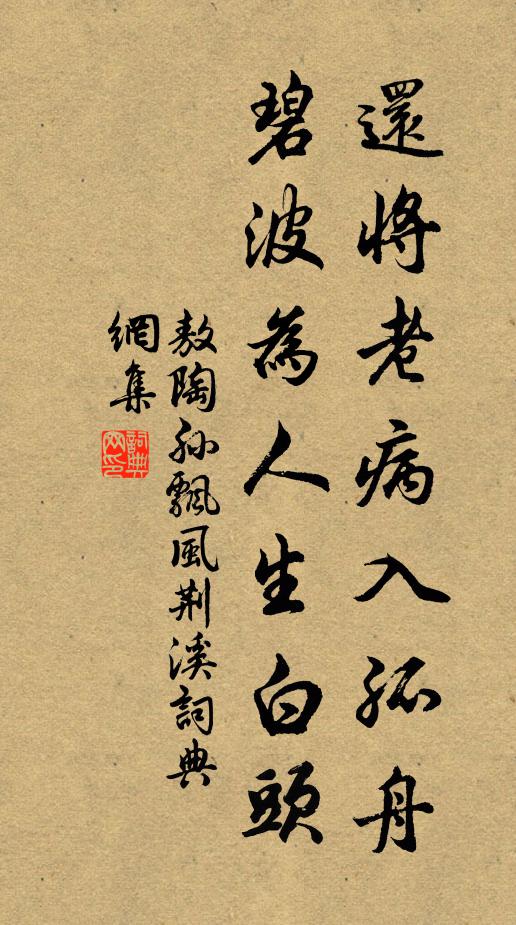 還將老病入孤舟
碧波為人生白頭
敖陶孙飄風荆溪詞典
網集
詞典網印